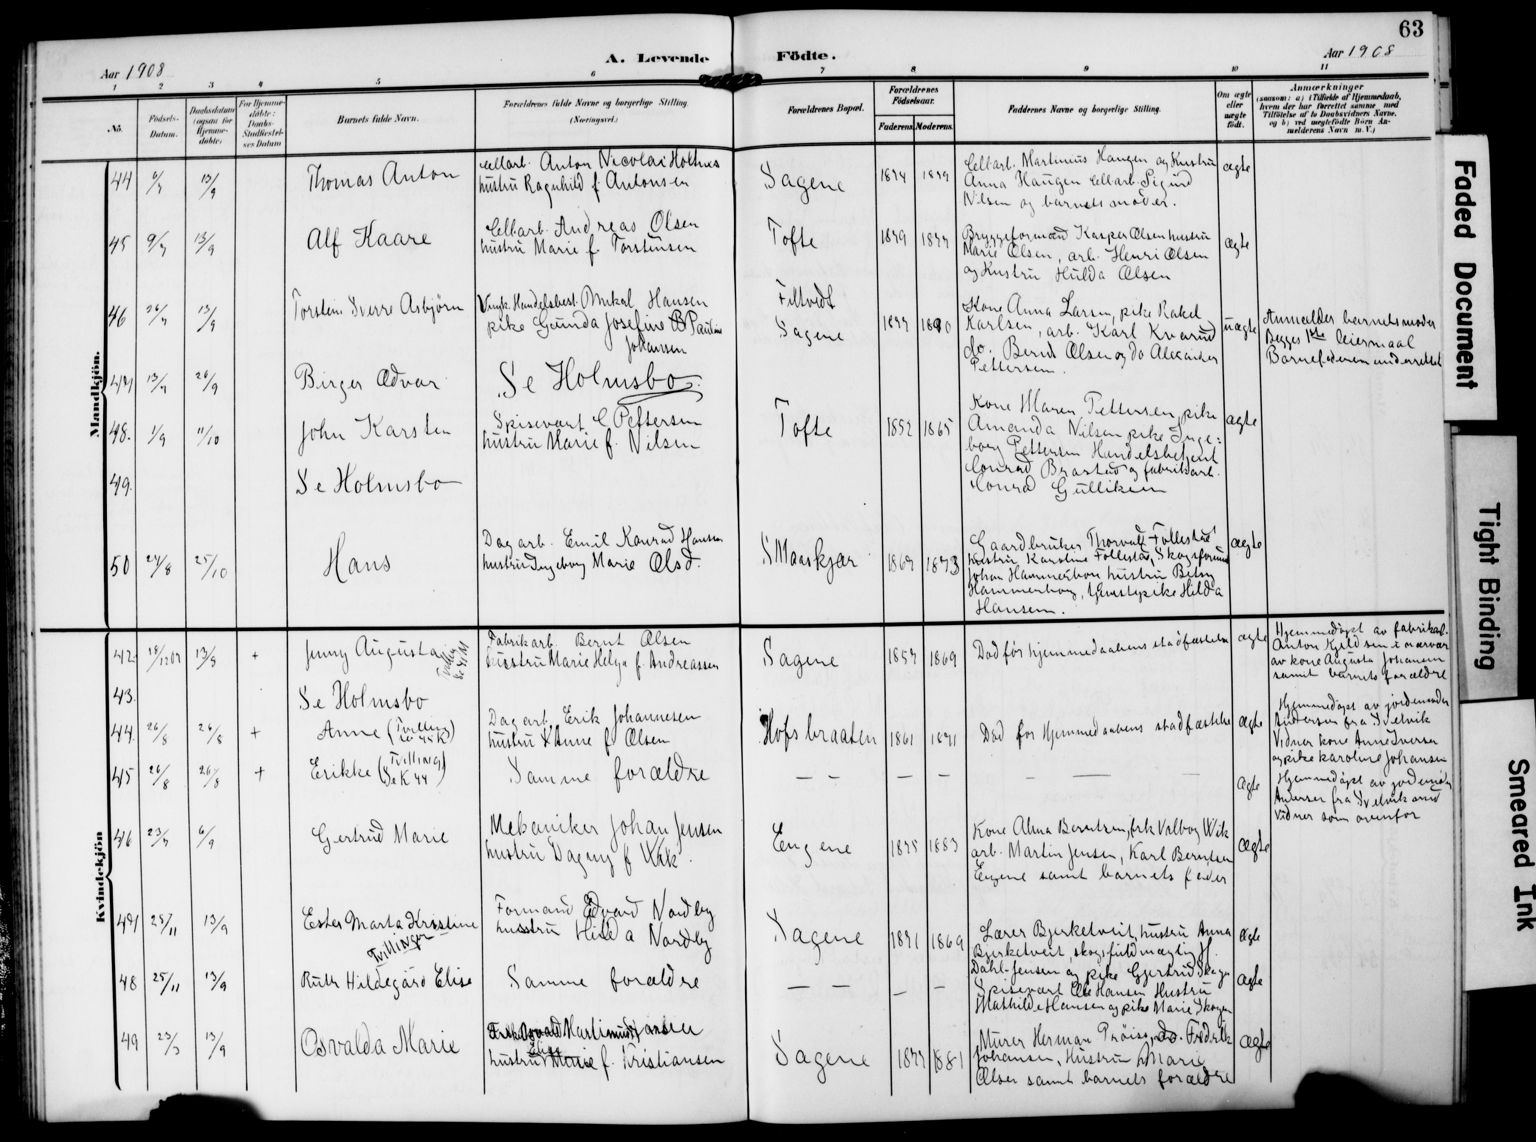 63
Aar 1908
A. Levende Födte.
Aar 1908
1 2 3 4 5 6 7 8 9 10 11
No.
Födsels-
Datum.
Daabsdatum
(ogsaa for
Hjemme-
döbte.)
For Hjemme-
döbte:
Daabs-
Stadfæstel-
ses Datum
Barnets fulde Navn.
Forældrenes fulde Navne og borgerlige Stilling.
(Næringsvei.)
Forældrenes Bopæl.
Forældrenes
Födselsaar.
Faderens. Moderens.
Faddernes Navne og borgerlige Stilling.
Om ægte
eller
uægte
födt.
Anmærkninger
(saasom: a) i Tilfælde af Hjemmedaab,
hvem der har forrettet samme med
Tilföielse af to Daabsvidners Navne.
og b) ved uægtefödte Börn An-
melderens Navn m. V.)
Mandkjön.
44 13/9 Thomas Anton
Cellarb. Anton Nicolai Holmes
hustru Ragnhild f. Antonsen
Sagene 1874 1879
Cellarb. Martinius Haugen og Hustru
Anna Haugen Cellarb. Sigurd
Nilsen og barnets moder.
ægte
45 9/7 13/9 Alf Kaare
Cellarb. Andreas Olsen
hustru Marie f. Torstensen
Tofte 1879 1877
Bryggeformand Kasper Olsen hustru
Marie Olsen, arb. Henri Olsen
og Hustru Hulda Olsen
ægte
46 26/7 13/9 Torstein Sverre Asbjørn
Handelsbest. Mikal Hansen
pike Gunda Josefine Pauline
Johansen
Filtvedt
Sagene 1877 1880
Kone Anna Larsen, pike Rakel
Karlsen, arb. Karl Kvarud
do. Bernt Olsen og do Alexander
Pettersen.
uægte
Anmelder barnets moder
Begges 1ste leiermaal
Barnefaderen underrettet
47 13/7 26/9 Birger Edvar
Se Holmsbo.
48. 1/9 11/10 John Karsten
Spisevert C Pettersen
hustru Marie f. Nilsen
Tofte 1852 1865
Kone Maren Pettersen, pike
Amanda Nilsen pike Inge-
borg Pettersen Handelsbetjent
Conrad Brastad og fabrikarb.
Conrad Gulliksen
ægte
49. Se Holmsbo
50 24/8 25/10 Hans
Dagarb. Emil Konrad Hansen
hustru Ingeborg Marie Olsd.
S Maaskjær 1867 1873
Gaardbruker Thorvald Follestad
hustru Karoline Follestad, Skogsformand
Johan Hammerborg hustru Betsy
Hammerborg, tjenestepike Hilda
Hansen.
ægte
Kvindekjön
42. 13/9 + Jenny Augusta
Fabrikarb. Bernt Olsen
hustru Marie Helga f. Andreassen
Sagene 1857 1869
Död för hjemmedaabens stadfæstelse
ægte
Hjemmedöpt av fabrikarb.
Anton Kjeldsen i nærvær
av kone Augusta Johansen
samt barnets forældre
43. Se Holmsbo
44. 26/8 26/8 + Anne (Tvilling
se 45 K)
Dagarb. Erik Johannesen
hustru Anne f Olsen
Hofsbraaten 1861 1871
Död for Hjemmedaabens stadfæstelse
ægte
Hjemmedöpt av jordemoder
Andersen fra Svelvik
Vidner kone Anne Iversen
og pike Karoline Johansen
45 26/8 26/8 + Erikke (Tvilling
Se K 44)
Samme forældre
— — — — — —
ægte
Hjemmedöpt av jordemoder
Andersen fra Svelvik med
vidner som ovenfor
46 23/7 6/9 Gertrud Marie
Mekaniker Johan Jensen
hustru Dagny f Wik.
Engene 1875 1883
Kone Alma Berntsen, frk Valborg Wik
arb. Martin Jensen, Karl Berntsen
Engene samt barnets fader
ægte
47 25/11 13/9 Ester Marta Kristine
Tvillinger
Formand Edvard Nordby
hustru Hilda Nordby
Sagene 1871 1869
Lærer Bjerketveit, hustru Anna
Bjerketveit, skogsfuldmægtig
Dahl-Jensen og pike Gjertrud Skogen
ægte
48 25/11 13/9 Ruth Hildegard Elise
Samme forældre
— — — —
Spisevært Ole Hansen Hustru
Mathilde Hansen og pike Marie Skogen
ægte
49 23/3 13/9 Osvalda Marie
Osvald Martinius Jansen
Elise
hustru Marie f. Kristiansen
Sagene 1877 1881
Murer Herman Pröis, do. Fredrik
Johansen, Hustru Marie
Olsen samt barnets forældre
ægte
Faded Document
Tight Binding
Smeared Ink